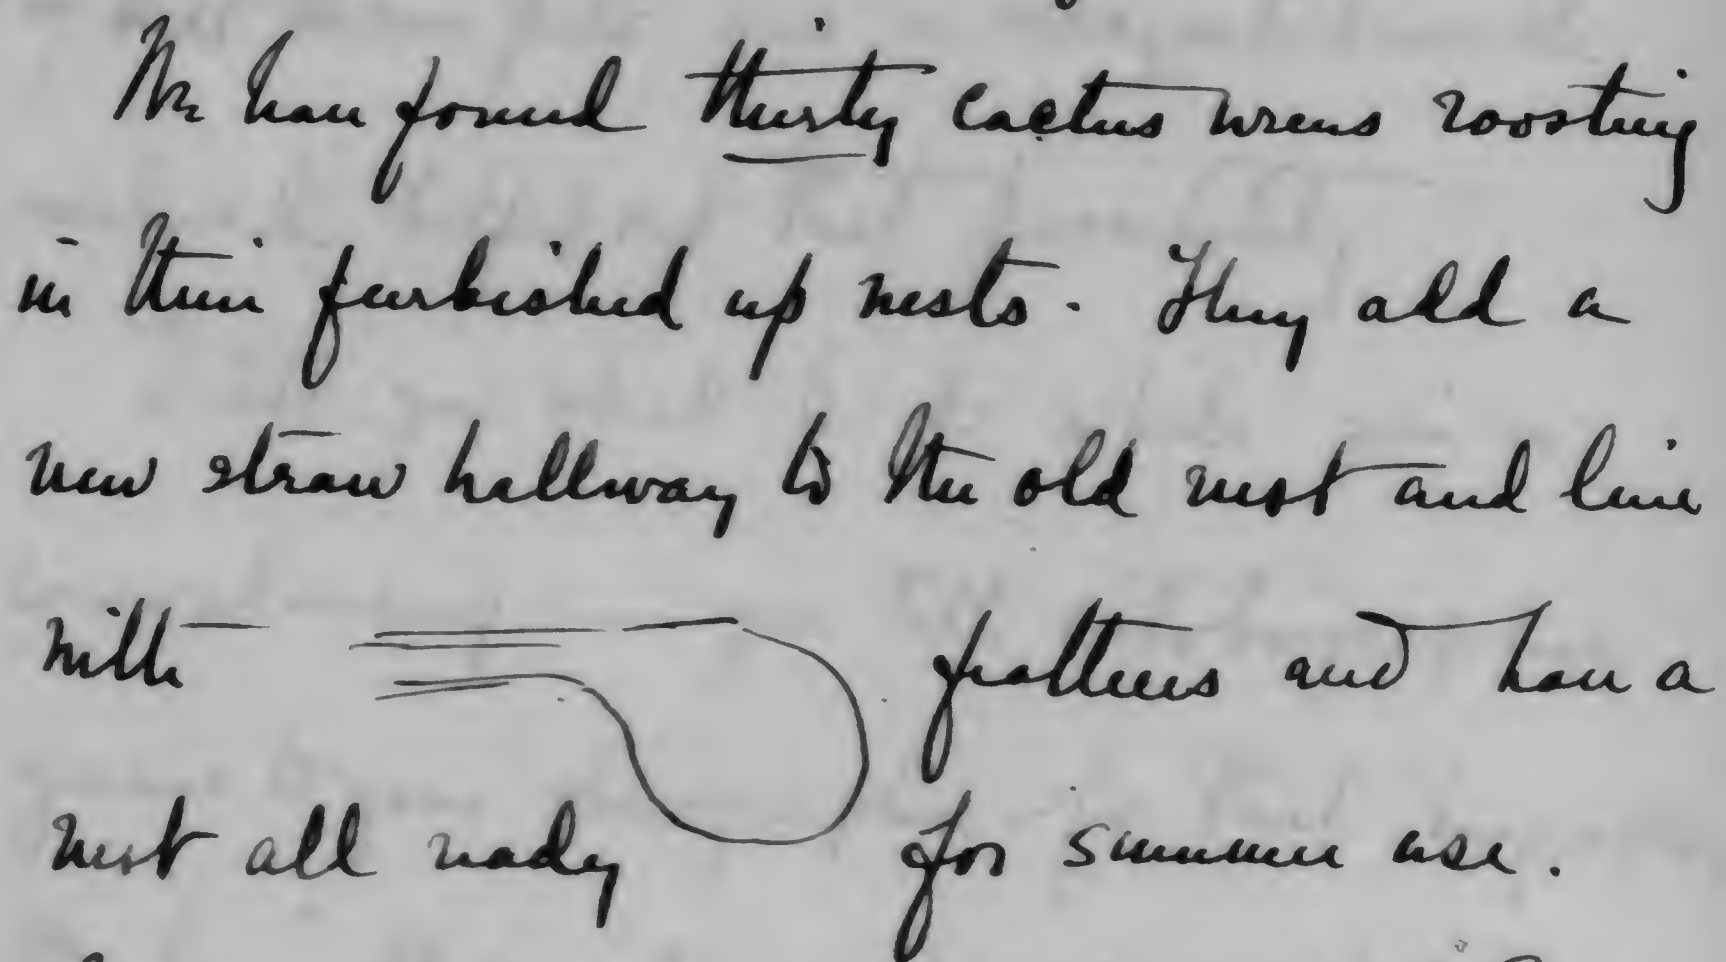 We have found thirty cactus wrens roosting
in their furbished up nests. They add a
new straw hallway to the old nest and line
with feathers and have a
nest all ready for summer use.